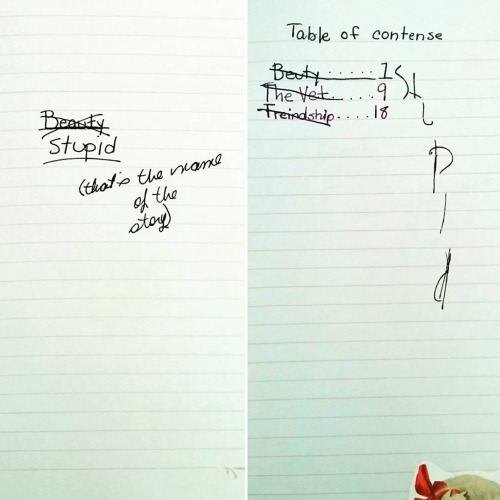 Beauty
Stupid
(that's the name
of the
story)
Table of contense
Beuty ..... 1
The Vet ..... 9
Freindship .... 18
S
t
u
p
i
d